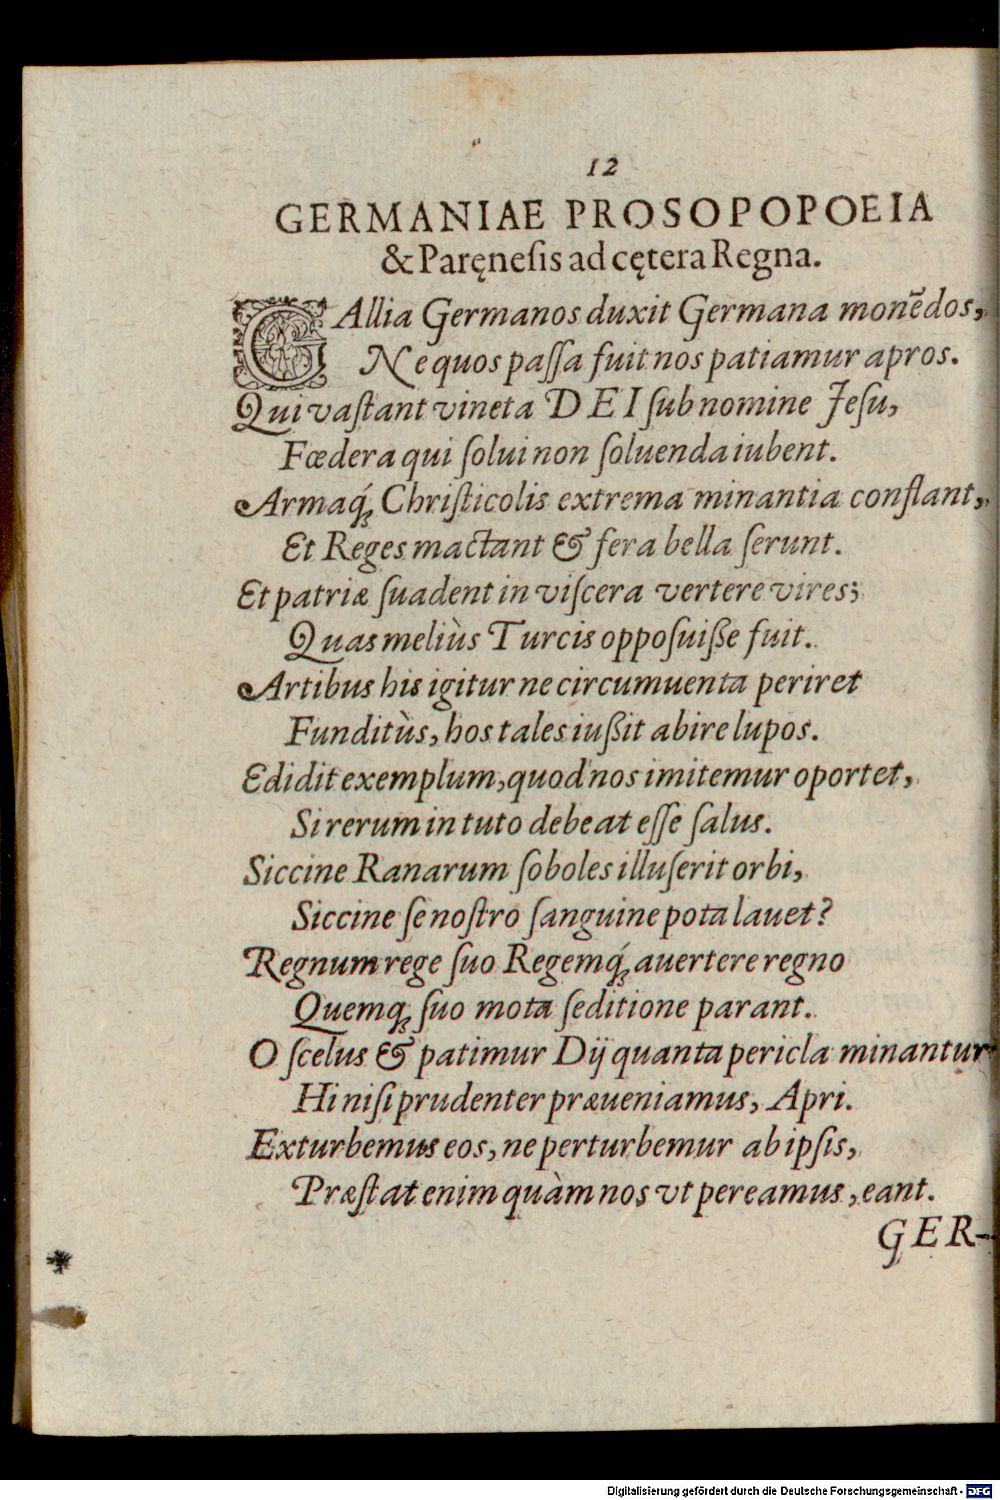 12
GERMANIAE PROSOPOPOEIA
& Paręneſis ad cętera Regna.
GAllia Germanos duxit Germana monẽdos,
Ne quos paſſa fuit nos patiamur apros.
Qui vaſtant vineta DEI ſub nomine Jeſu,
Fœdera qui ſolui non ſoluenda iubent.
Armaq́; Chriſticolis extrema minantia conflant,
Et Reges mactant & fera bella ſerunt.
Et patriæ ſuadent in viſcera vertere vires;
Quas meliùs Turcis oppoſuiße fuit.
Artibus his igitur ne circumuenta periret
Funditùs, hos tales iußit abire lupos.
Edidit exemplum, quod nos imitemur oportet,
Si rerum in tuto debeat eſſe ſalus.
Siccine Ranarum ſoboles illuſerit orbi,
Siccine ſe noſtro ſanguine pota lauet?
Regnum rege ſuo Regemq́; auertere regno
Quemq; ſuo mota ſeditione parant.
O ſcelus & patimur Dij quanta pericla minantur
Hi niſi prudenter præueniamus, Apri.
Exturbemus eos, ne perturbemur ab ipſis,
Præſtat enim quàm nos vt pereamus, eant.
GER-
Digitalisierung gefördert durch die Deutsche Forschungsgemeinschaft - DFG